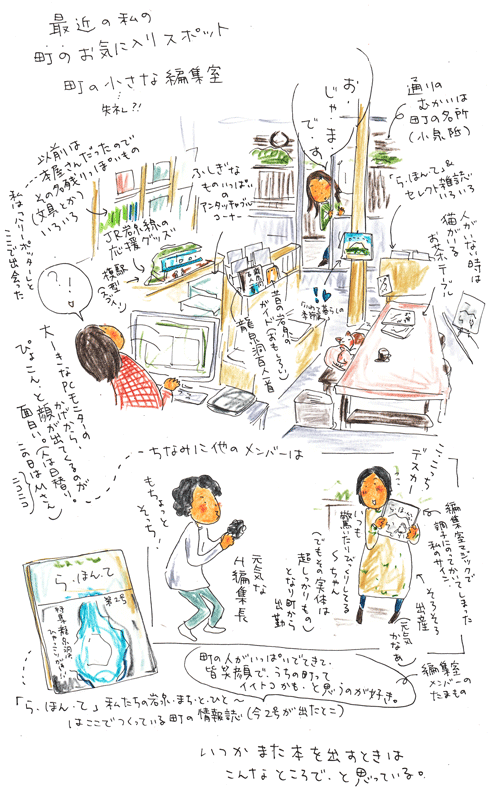 最近の私の
町のお気に入りスポット
町の小さな編集室
失礼?!
お・
じゃ・ま・
で・す
通りの
むかいは
町の名所
(小泉邸)
「ら・ほん・て」&
セレクト雑誌
いろいろ
人がいない時は
猫がいる
お茶テーブル
以前は
本屋さんだったので
その名残っぽいもの
(文具とか)
いろいろ
私はハリーポッターと
ここで出会った
ふしぎな
ものいっぱいの
アンタッチャブル
コーナー
JR岩泉線の
応援グッズ
模型
昔の岩泉の
ガイド(おもしろい)
龍泉洞百人一首
?!
大ーきな
PCモニターの
かげから、
ぴょこん、と顔が出てくるのが
面白い。(人は日替り。
この日はMさん)
ニコニコ
ちなみに他のメンバーは
もちょっと
そっち!
元気な
H編集長
こっち
デスカー
いつも
驚いたりびっくりしてる
Sちゃん
(でもその実体は
超しっかりもの)
となり町から
出勤
編集室マジックで
調子にのってかいてしまった
私のサイン
そろそろ
出産
(元気
かなぁ)
ら・ほん・て
第2号
「ら・ほん・て」私たちの岩泉・まち・と・ひと〜
はここでつくっている町の情報誌(今2号が出たとこ)
町の人がいっぱいでてきて、
皆笑顔で、うちの町って
イイトコかも、と思うのが好き。
編集室
メンバーの
たまもの
いつかまた本を出すときは
こんなところで、と思っている。